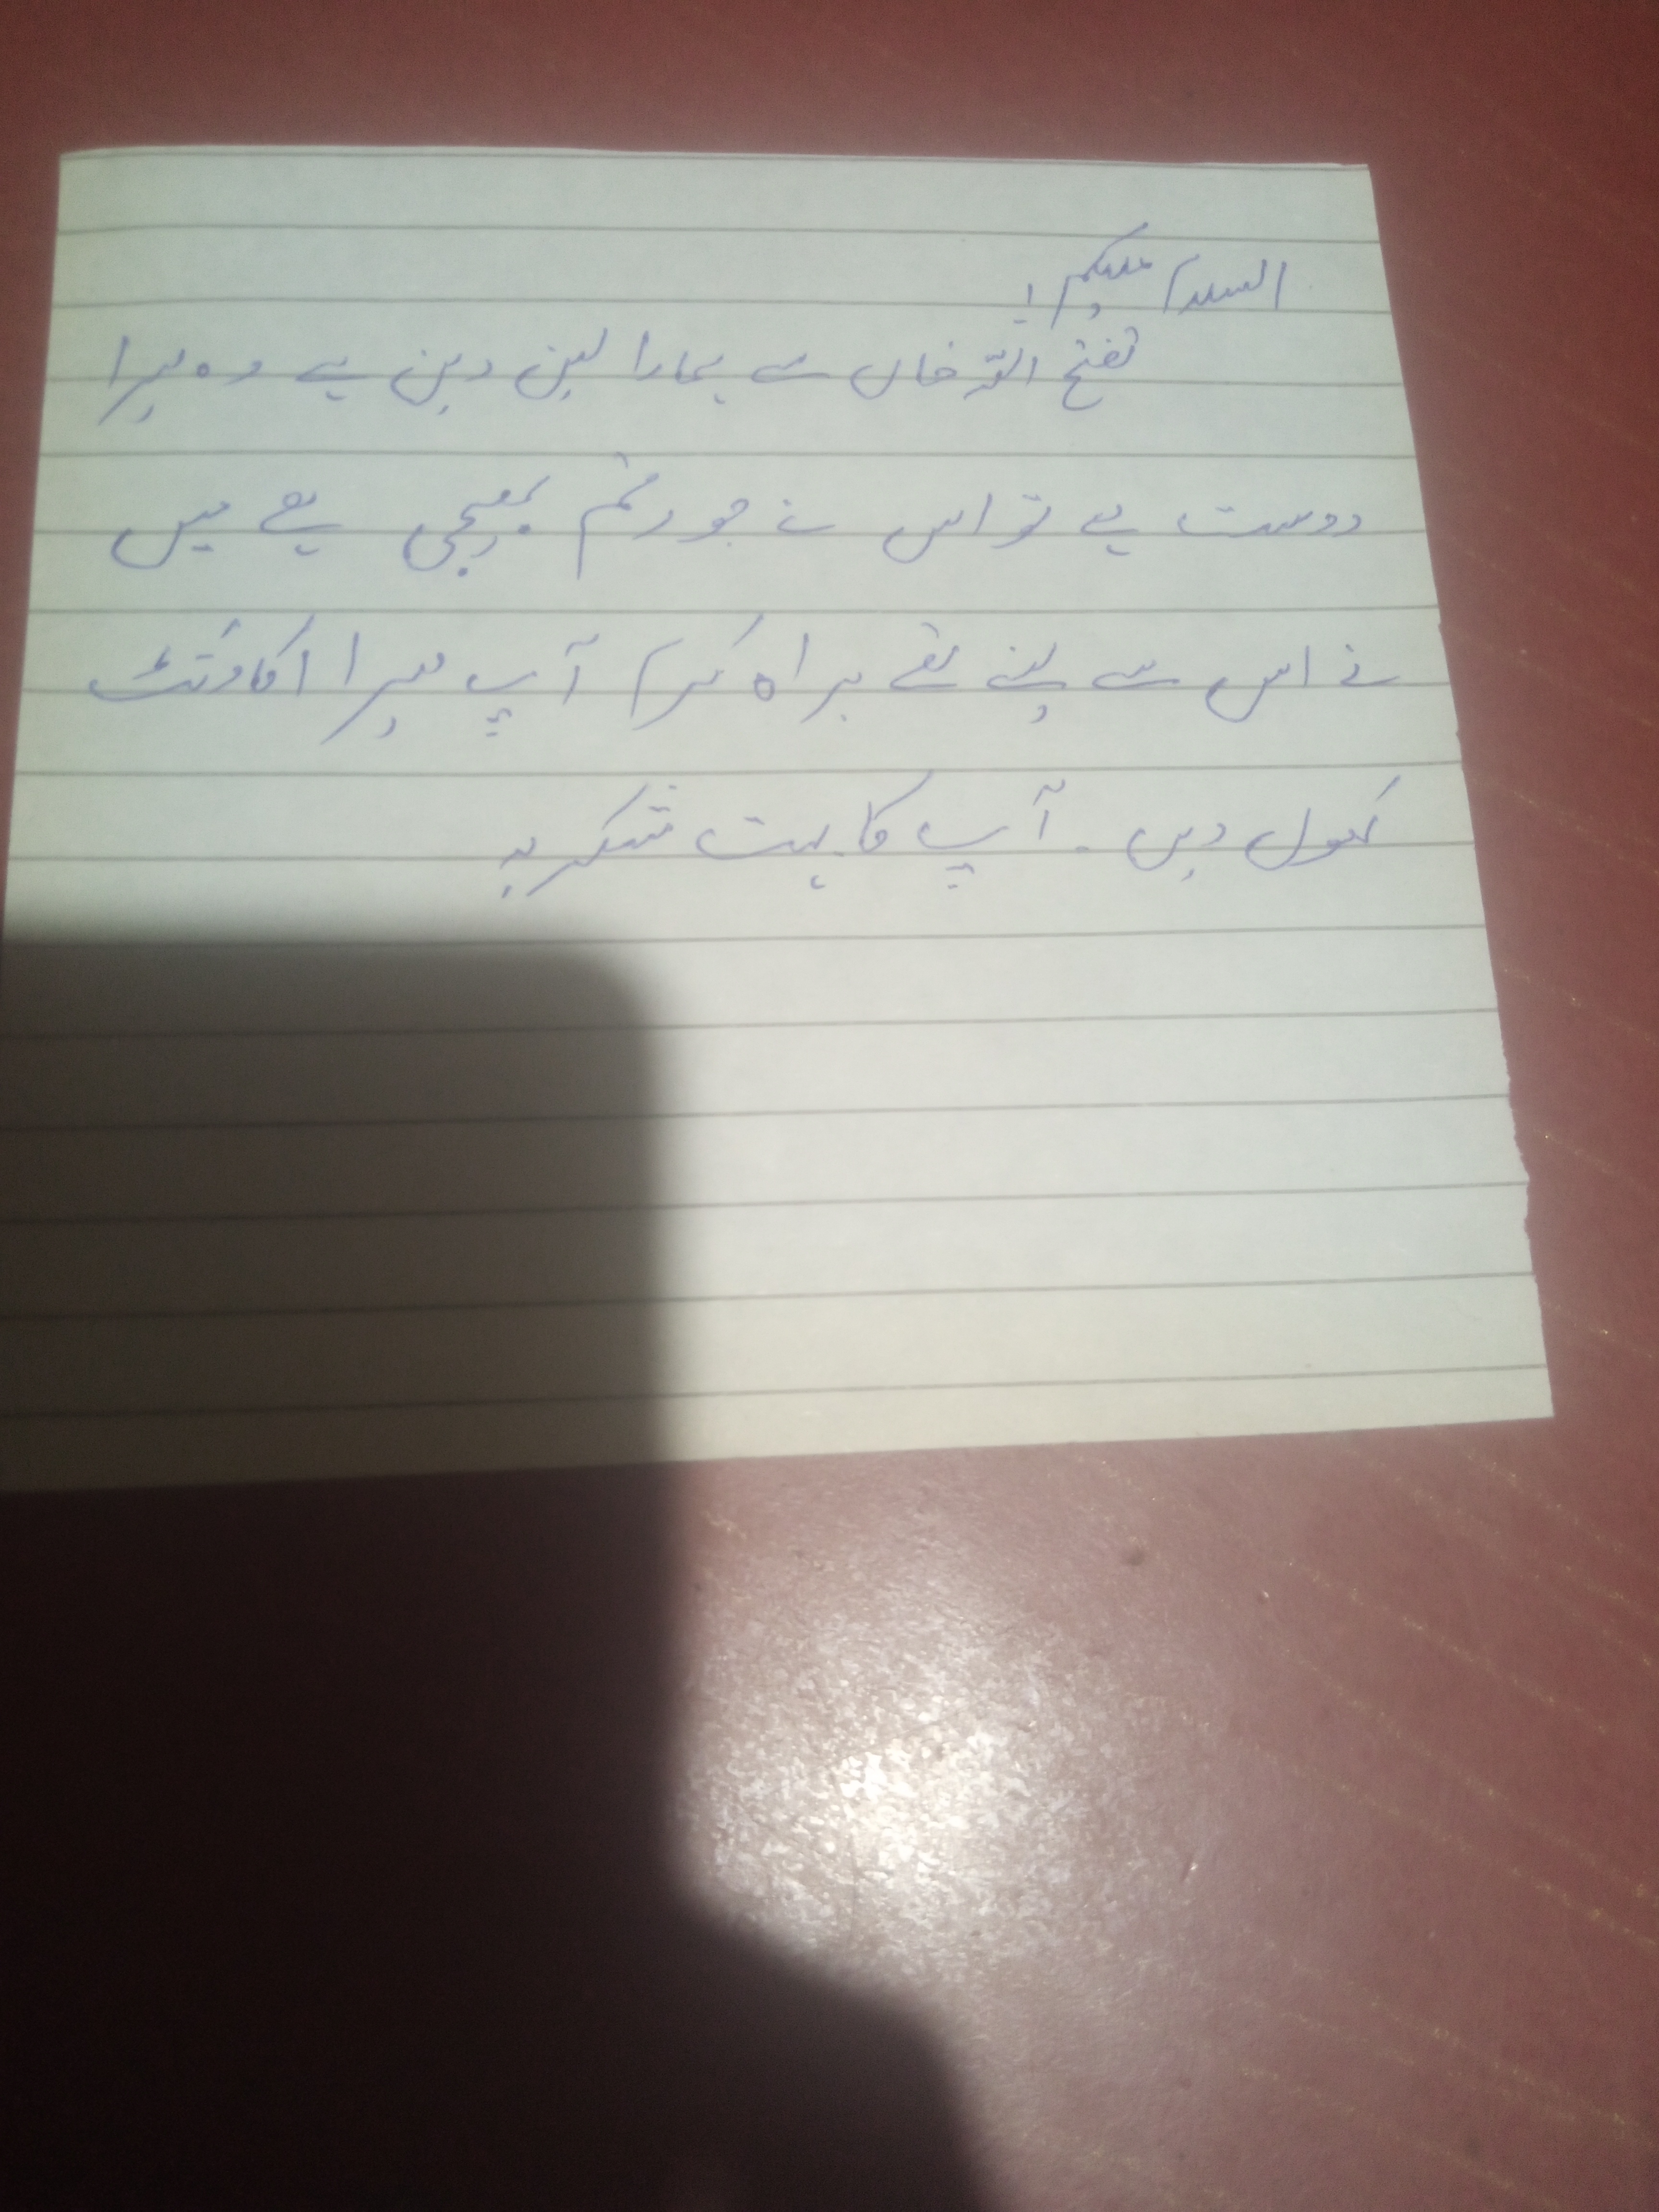 السلام علیکم!
فتح اللہ خان سے ہمارا لین دین ہے وہ میرا
دوست ہے تو اس نے جو رقم بھیجی ہے میں
نے اس سے لینے تھے براہ کرم آپ میرا اکاؤنٹ
کھول دیں۔ آپ کا بہت شکریہ